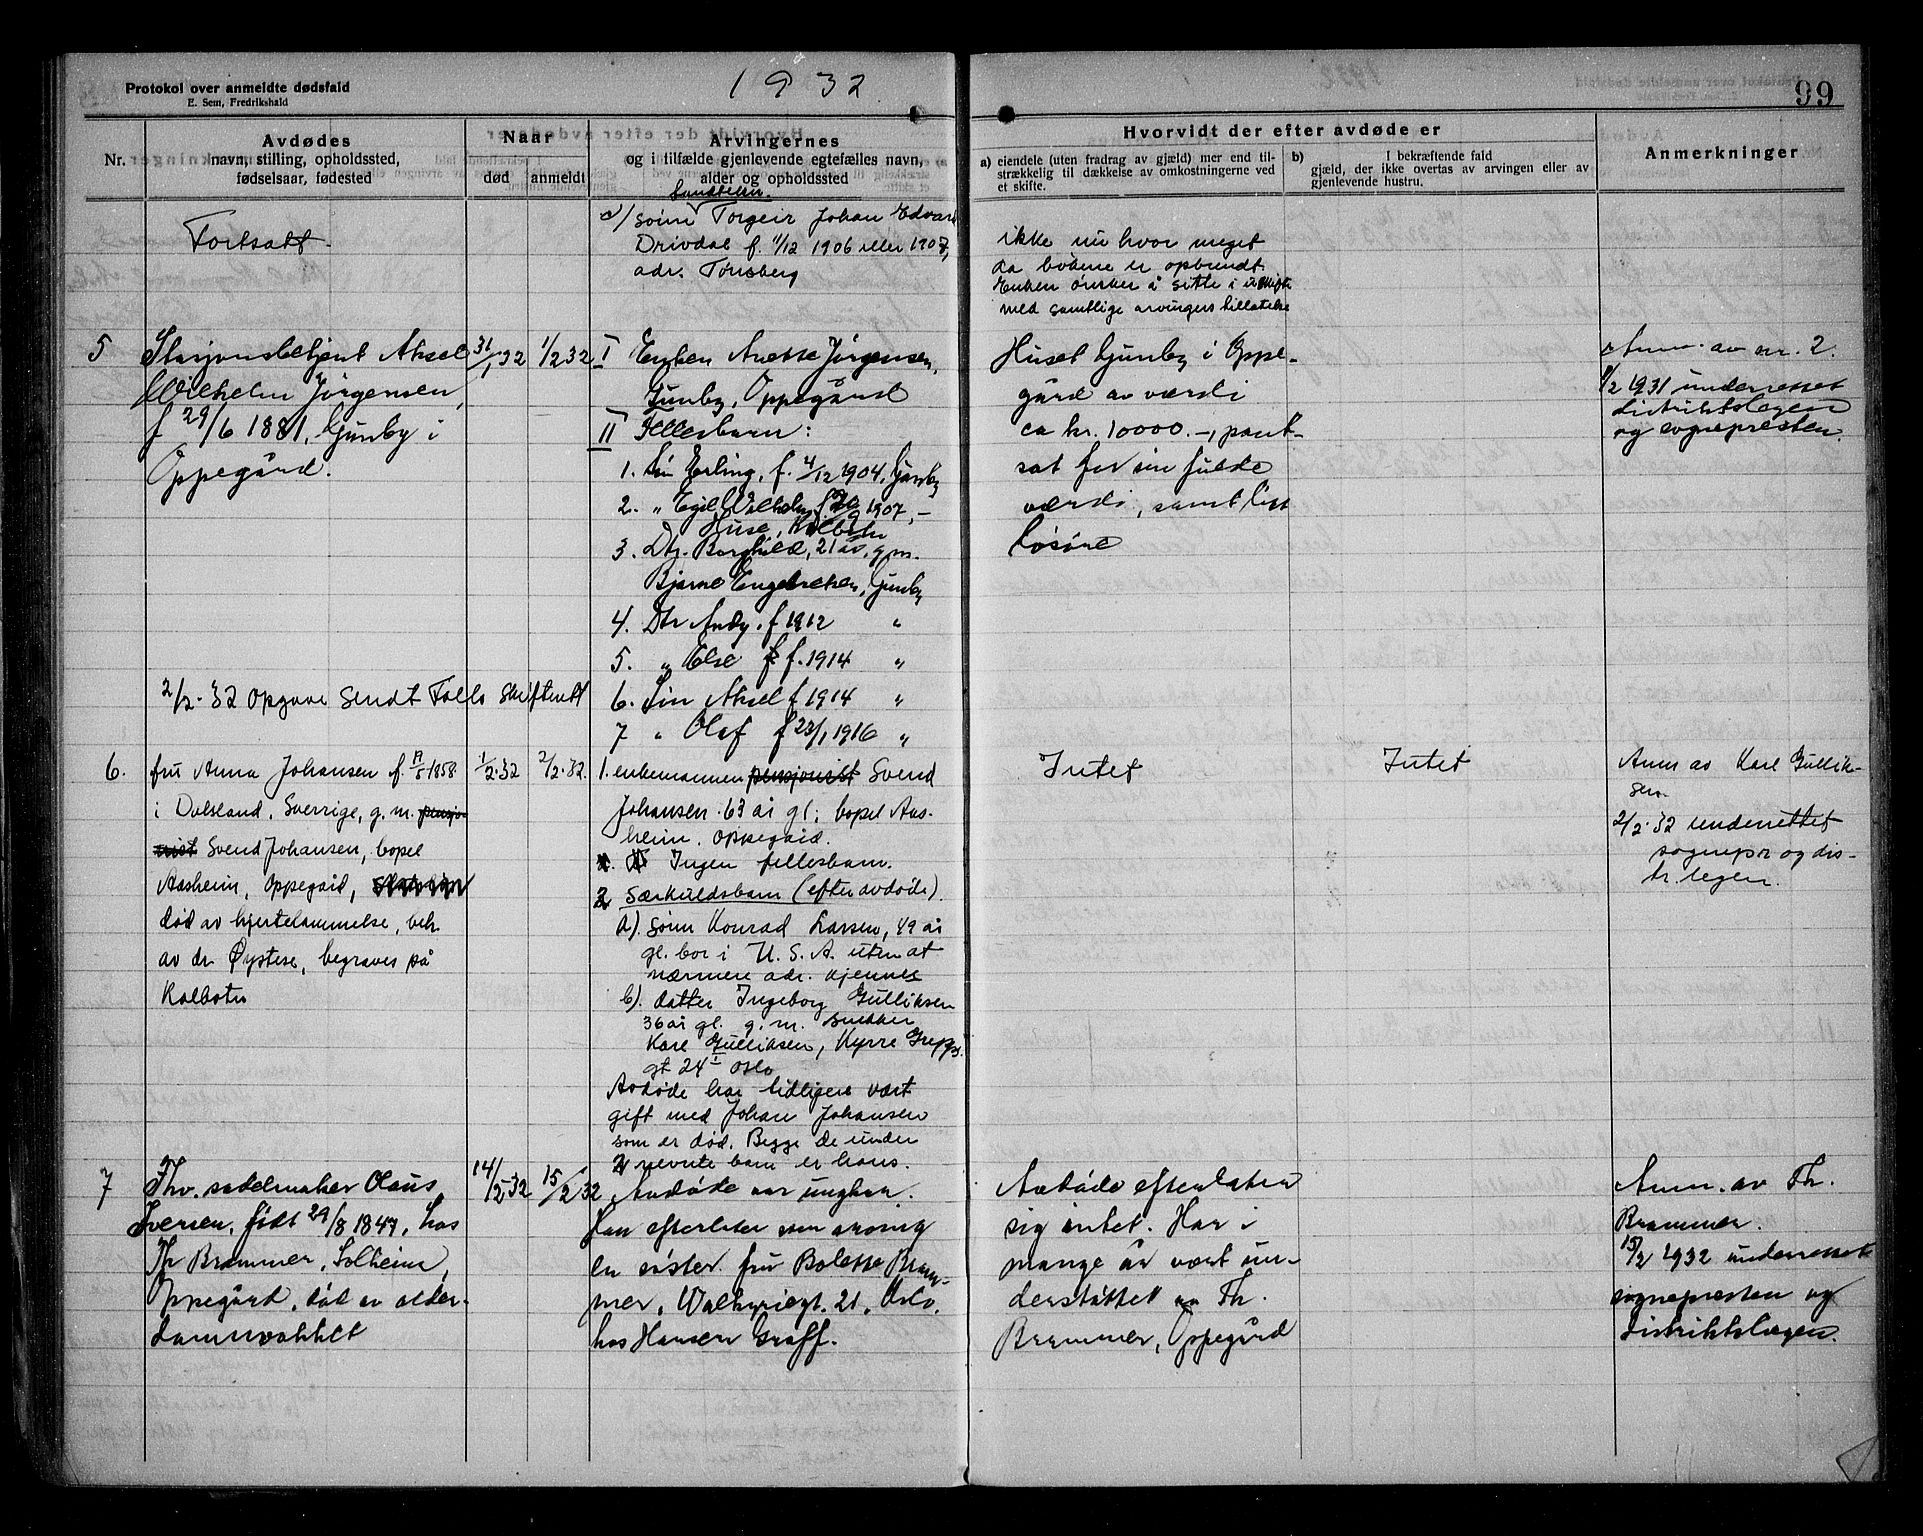 Protokol over anmeldte dødsfald
E. Sem, Fredrikshald
1932
99
Nr.
Avdødes
navn, stilling, opholdssted,
fødselsaar, fødested
Naar
død
anmeldt
Arvingernes
og i tilfælde gjenlevende egtefælles navn,
alder og opholdssted
Hvorvidt der efter avdøde er
a) eiendele (uten fradrag av gjæld) mer end til-
strækkelig til dækkelse av omkostningerne ved
et skifte.
b) I bekræftende fald
gjæld, der ikke overtas av arvingen eller av
gjenlevende hustru.
Anmerkninger
Fortsatt.
c/ sønn Torgeir Johan Edvard
Drivdal f. 1/12 1906 eller 1907,
adr. Tønsberg
ikke nu hvor meget
da bøkene er opbrændt.
Enken ønsker å sitte i uskifte
med samtlige arvingers tillatelse
5
Stasjonsbetjent Aksel
Wilhelm Jørgensen,
f 29/6 1881, Gjunby i
Oppegård.
31/1 32
1/2 32
I Enken Anette Jørgensen,
Gjunby, Oppegård
II Fellesbarn:
1. Søn Erling, f. 4/12 1904, Gjunby
2. " Egil Wilhelm, 1907, -
Huse, Kolbotn
3. Dtr. Borghild, 21 år, g.m.
Bjarne Engebretsen, Gjunby
4. Dtr Andy, f 1912 "
5. " Else f f. 1914 "
6. Søn Aksel f 1914 "
7 " Olaf f 23/1 1916 "
Huset Gjunby i Oppe-
gård av værdi
ca kr. 10000.-, pant-
sat for sin fulde
værdi, samt litt
løsøre
Anm. av nr. 2.
1/2 1931 underrettet
distriktslægen
og sognepresten.
2/2.32 Opgave sendt Follo skifterett
6.
fru Anna Johansen f. 17/5 1858
i Dalsland, Sverrige, g.m. pensjo-
nist Svend Johansen, bopel
Aasheim, Oppegård,
død av hjertelammelse, beh.
av dr Øystese, begraves på
Kolbotn
1/2.32
2/2.32.
1. enkemannen pensjonist Svend
Johansen 63 år gl; bopel Aas-
heim, Oppegård.
Ingen fellesbarn.
2 Særkuldsbarn (efter avdøde).
a). Sønn Konrad Larsen, 49 år
gl. bor i U.S.A. uten at
nærmere adr. kjennes
b). datter Ingeborg Gulliksen
36 år gl. g.m. snekker
Karl Gulliksen, Kyrre Greps
gt 24 I Oslo
Avdøde har tidligere vært
gift med Johan Johansen
som er død. Begge de under
2 nevnte barn er hans.
Intet
Intet
Anm av Karl Gullik-
sen.
2/2.32 underrettet
sognepr og dis-
tr. legen.
7
Fhv. sadelmaker Olaus
Iversen, født 29/8 1847, hos
Th Brammer, Solheim,
Oppegård, død av alder-
domsvakhet
14/2 32
15/2 32
Avdøde var ungkar.
Han efterlater som arving
en søster fru Bolette Bram-
mer, Walkyriegt. 21, Oslo,
hos Hansen Graff.
Avdøde efterlater
sig intet. Har i
mange år vært un-
derstøttet av Th.
Brammer, Oppegård
Anm. av Th.
Brammer.
15/2 1932 underrettet
sognepresten og
distriktslægen.